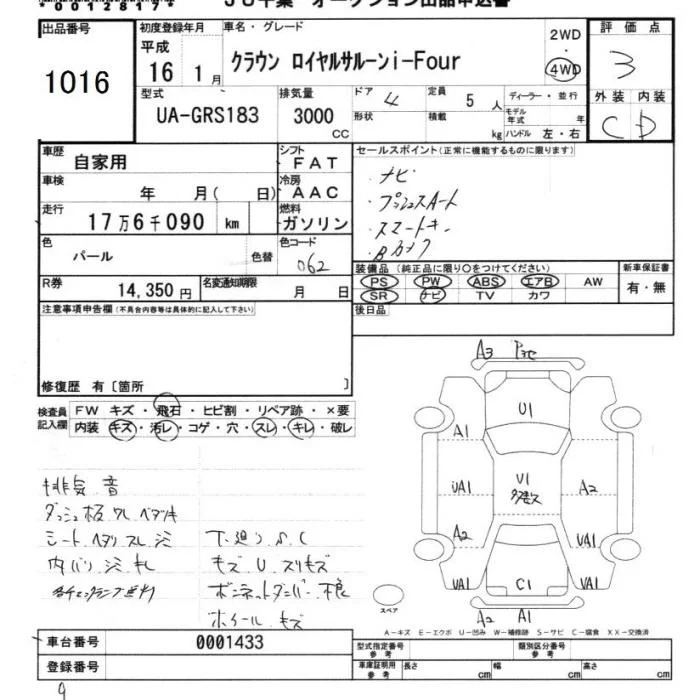 *00128174*
JU千葉 オークション出品申込書
出品番号
1016
初度登録年月
平成
16 1月
車名・グレード
クラウン ロイヤルサルーンi-Four
2WD
・
4WD
評価点
3
外装 内装
C D
型式
UA-GRS183
排気量
3000
CC
ドア 4
形状
定員 5 人
積載 kg
ディーラー・並行
モデル年式 年
ハンドル 左・右
車歴
自家用
シフト
FAT
車検
年 月( 日)
冷房
AAC
走行
17万6千090 km
燃料
ガソリン
色
パール
色替
色コード
062
セールスポイント(正常に機能するものに限ります)
・ナビ
・プッシュスタート
・スマートキー
・Bカメラ
R券
14,350円
名変通知期限
月 日
装備品(純正品に限り○をつけてください)
PS PW ABS エアB AW
SR ナビ TV カワ
新車保証書
有・無
後日品
注意事項申告欄(不具合内容等は具体的に記入して下さい)
修復歴 有〔箇所 〕
検査員
記入欄
FW キズ・飛石・ヒビ割・リペア跡・×要
内装 キズ・汚レ・コゲ・穴・スレ・キレ・破レ
排気音
ダッシュ板ワレ ベタツキ
シート ヘタリ スレ シミ
内バリ シミ キレ
各チェックランプ
下廻り S.C
キズ U スリキズ
ボンネットダンパー 不良
ホイール キズ
A3
U1
A1
UA1
U1
多キズ
A2
A2
UA1
UA1
C1
UA1
A2 A1
スペア
A-キズ E-エクボ U-凹み W-補修跡 S-サビ C-腐食 XX-交換済
車台番号
0001433
登録番号
型式指定番号
参考
類別区分番号
参考
車庫証明用
参考
長さ cm
幅 cm
高さ cm
9